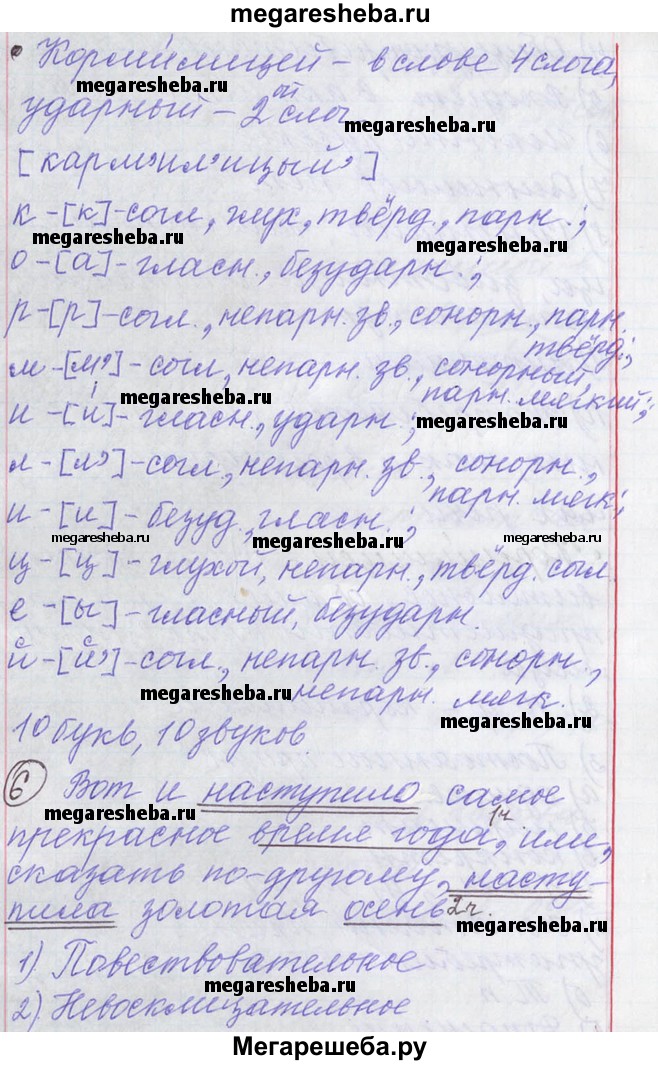 megaresheba.ru
• Кормилицей – в слове 4 слога,
megaresheba.ru
ударный – 2ой слог
megaresheba.ru
[карм'ил'ицый']
к – [к] – согл., глух., твёрд., парн.;
megaresheba.ru
megaresheba.ru
о – [а] – гласн., безударн.;
р – [р] – согл., непарн. зв., сонорн., парн.
твёрд.;
м – [м'] – согл., непарн. зв., сонорный,
парн. мягкий;
megaresheba.ru
и – [и́] – гласн., ударн.;
megaresheba.ru
л – [л'] – согл., непарн. зв., сонорн.,
парн. мягк.;
и – [и] – безуд., гласн.;
megaresheba.ru
megaresheba.ru
megaresheba.ru
ц – [ц] – глухой, непарн., твёрд. согл.
е – [ы] – гласный, безударн.
й – [й'] – согл., непарн. зв., сонорн.,
megaresheba.ru
непарн. мягк.
megaresheba.ru
10 букв, 10 звуков
6 Вот и наступило самое
megaresheba.ru
прекрасное время года, 1ч. или,
сказать по-другому, насту-
megaresheba.ru
пила золотая осень 2ч.
1) Повествовательное
megaresheba.ru
2) Невосклицательное
Мегарешеба.ру